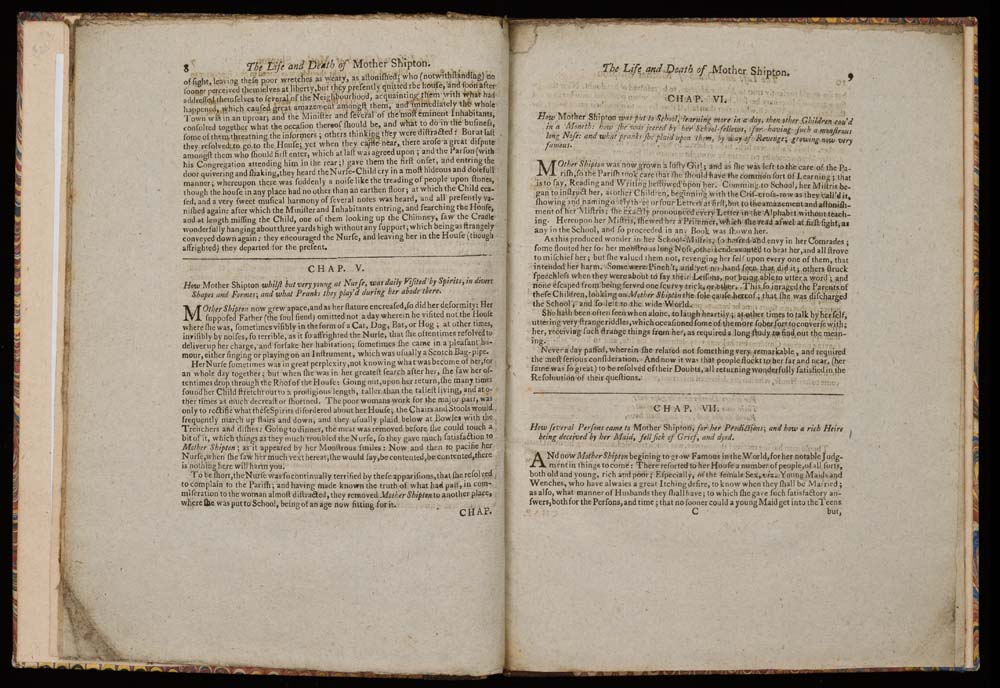 8 The Life and Death of Mother Shipton.
of sight, leaving these poor wretches as weary, as astonished; who (notwithstanding) no
sooner perceived themselves at liberty, but they presently quitted the house, and soon after
addressed themselves to several of the Neighbourhood, acquainting them with what had
happened, which caused great amazement amongst them, and immediately the whole
Town was in an uproar; and the Minister and several of the most eminent Inhabitants,
consulted together what the occasion thereof should be, and what to do in the business,
some of them threatning the informers; others thinking they were distracted: But at last
they resolved to go to the House; yet when they came near, there arose a great dispute
amongst them who should first enter, which at last was agreed upon; and the Parson (with
his Congregation attending him in the rear,) gave them the first onset, and entring the
door quivering and shaking, they heard the Nurse-Child cry in a most hideous and dolefull
manner; whereupon there was suddenly a noise like the treading of people upon stones,
though the house in any place had no other than an earthen floor; at which the Child cea-
sed, and a very sweet musical harmony of several notes was heard, and all presently va-
nished again: after which the Minister and Inhabitants entring, and searching the House,
and at length missing the Child, one of them looking up the Chimney, saw the Cradle
wonderfully hanging about three yards high without any support; which being as strangely
conveyed down again: they encouraged the Nurse, and leaving her in the House (though
affrighted) they departed for the present.
CHAP. V.
How Mother Shipton whilst but very young at Nurse, was daily Visited by Spirits, in divers
Shapes and Formes; and what Pranks they play'd during her abode there.
MOther Shipton now grew apace, and as her stature encreased, so did her deformity: Her
supposed Father (the foul fiend) omitted not a day wherein he visited not the House
where she was, sometimes visibly in the form of a Cat, Dog, Bat, or Hog; at other times,
invisibly by noises, so terrible, as it so affrighted the Nurse, that she oftentimes resolved to
deliver up her charge, and forsake her habitation; sometimes she came in a pleasant hu-
mour, either singing or playing on an Instrument, which was usually a Scotch Bag-pipe.
Her Nurse sometimes was in great perplexity, not knowing what was become of her, for
an whole day together; but when she was in her greatest search after her, she saw her of-
tentimes drop through the Rhoof of the House: Going out, upon her return, she many times
found her Child stretcht out to a prodigious length, taller than the tallest living, and at o-
ther times as much decreast or shortned. The poor womans work for the major part, was
only to rectifie what these Spirits disordered about her House; the Chairs and Stools would
frequently march up stairs and down, and they usually plaid below at Bowles with the
Trenchers and dishes: Going to dinner, the meat was removed before she could touch a
bit of it, which things as they much troubled the Nurse, so they gave much satisfaction to
Mother Shipton; as it appeared by her Monstrous smiles: Now and then to pacifie her
Nurse, when she saw her much vext hereat, she would say, be contented, be contented, there
is nothing here will harm you.
To be short, the Nurse was so continually terrified by these apparisions, that she resolved
to complain to the Parish; and having made known the truth of what had past, in com-
miseration to the woman almost distracted, they removed Mother Shipton to another place,
where she was put to School, being of an age now fitting for it.
CHAP.
The Life and Death of Mother Shipton. 9
CHAP. VI.
How Mother Shipton was put to School, learning more in a day, then other Children cou'd
in a Month: how she was jeered by her School-fellows, for having such a monstrous
long Nose: and what pranks she plaid upon them, by way of Revenge, growing now very
famous.
MOther Shipton was now grown a lusty Girl; and as she was left to the care of the Pa-
rish, so the Parish took care that she should have the common sort of Learning; that
is to say, Reading and Writing bestowed upon her. Comming to School, her Mistris be-
gan to instruct her, as other Children, beginning with the Cris-cross-row as they call'd it,
showing and naming only three or four Letters at first, but to the amazement and astonish-
ment of her Mistris; she exactly pronounced every Letter in the Alphabet without teach-
ing. Hereupon her Mistris, shewed her a Primmer, which she read aswel at first sight, as
any in the School, and so proceeded in any Book was shown her.
As this produced wonder in her School-Mistris, so hatred and envy in her Comrades;
some flouted her for her monstrous long Nose, others endeavoured to beat her, and all strove
to mischief her; but she valued them not, revenging her self upon every one of them, that
intended her harm. Some were Pinch't, and yet no hand seen that did it; others struck
speechless when they were about to say their Lessons, not being able to utter a word; and
none escaped from being served one scurvy trick, or other. This so inraged the Parents of
these Children, looking on Mother Shipton the sole cause hereof; that she was discharged
the School; and so left to the wide World.
She hath been often seen when alone, to laugh heartily; at other times to talk by her self,
uttering very strange riddles, which occasioned some of the more sober sort to converse with
her, receiving such strange things from her, as required a long study to find out the mean-
ing.
Never a day passed, wherein she related not something very remarkable, and required
the most serious consideration. And now it was that people flockt to her far and near, (her
fame was so great) to be resolved of their Doubts, all returning wonderfully satisfied in the
Resolution of their questions.
CHAP. VII.
How several Persons came to Mother Shipton, for her Predictions, and how a rich Heire
being deceived by her Maid, fell sick of Grief, and dyed.
ANd now Mother Shipton begining to grow Famous in the World, for her notable Judg-
ment in things to come: There resorted to her House a number of people, of all sorts,
both old and young, rich and poor: Especially, of the female Sex, viz. Young Maids and
Wenches, who have alwaies a great Itching desire, to know when they shall be Married;
as also, what manner of Husbands they shall have; to which she gave such satisfactory an-
swers, both for the Persons, and time; that no sooner could a young Maid get into the Teens
C but,